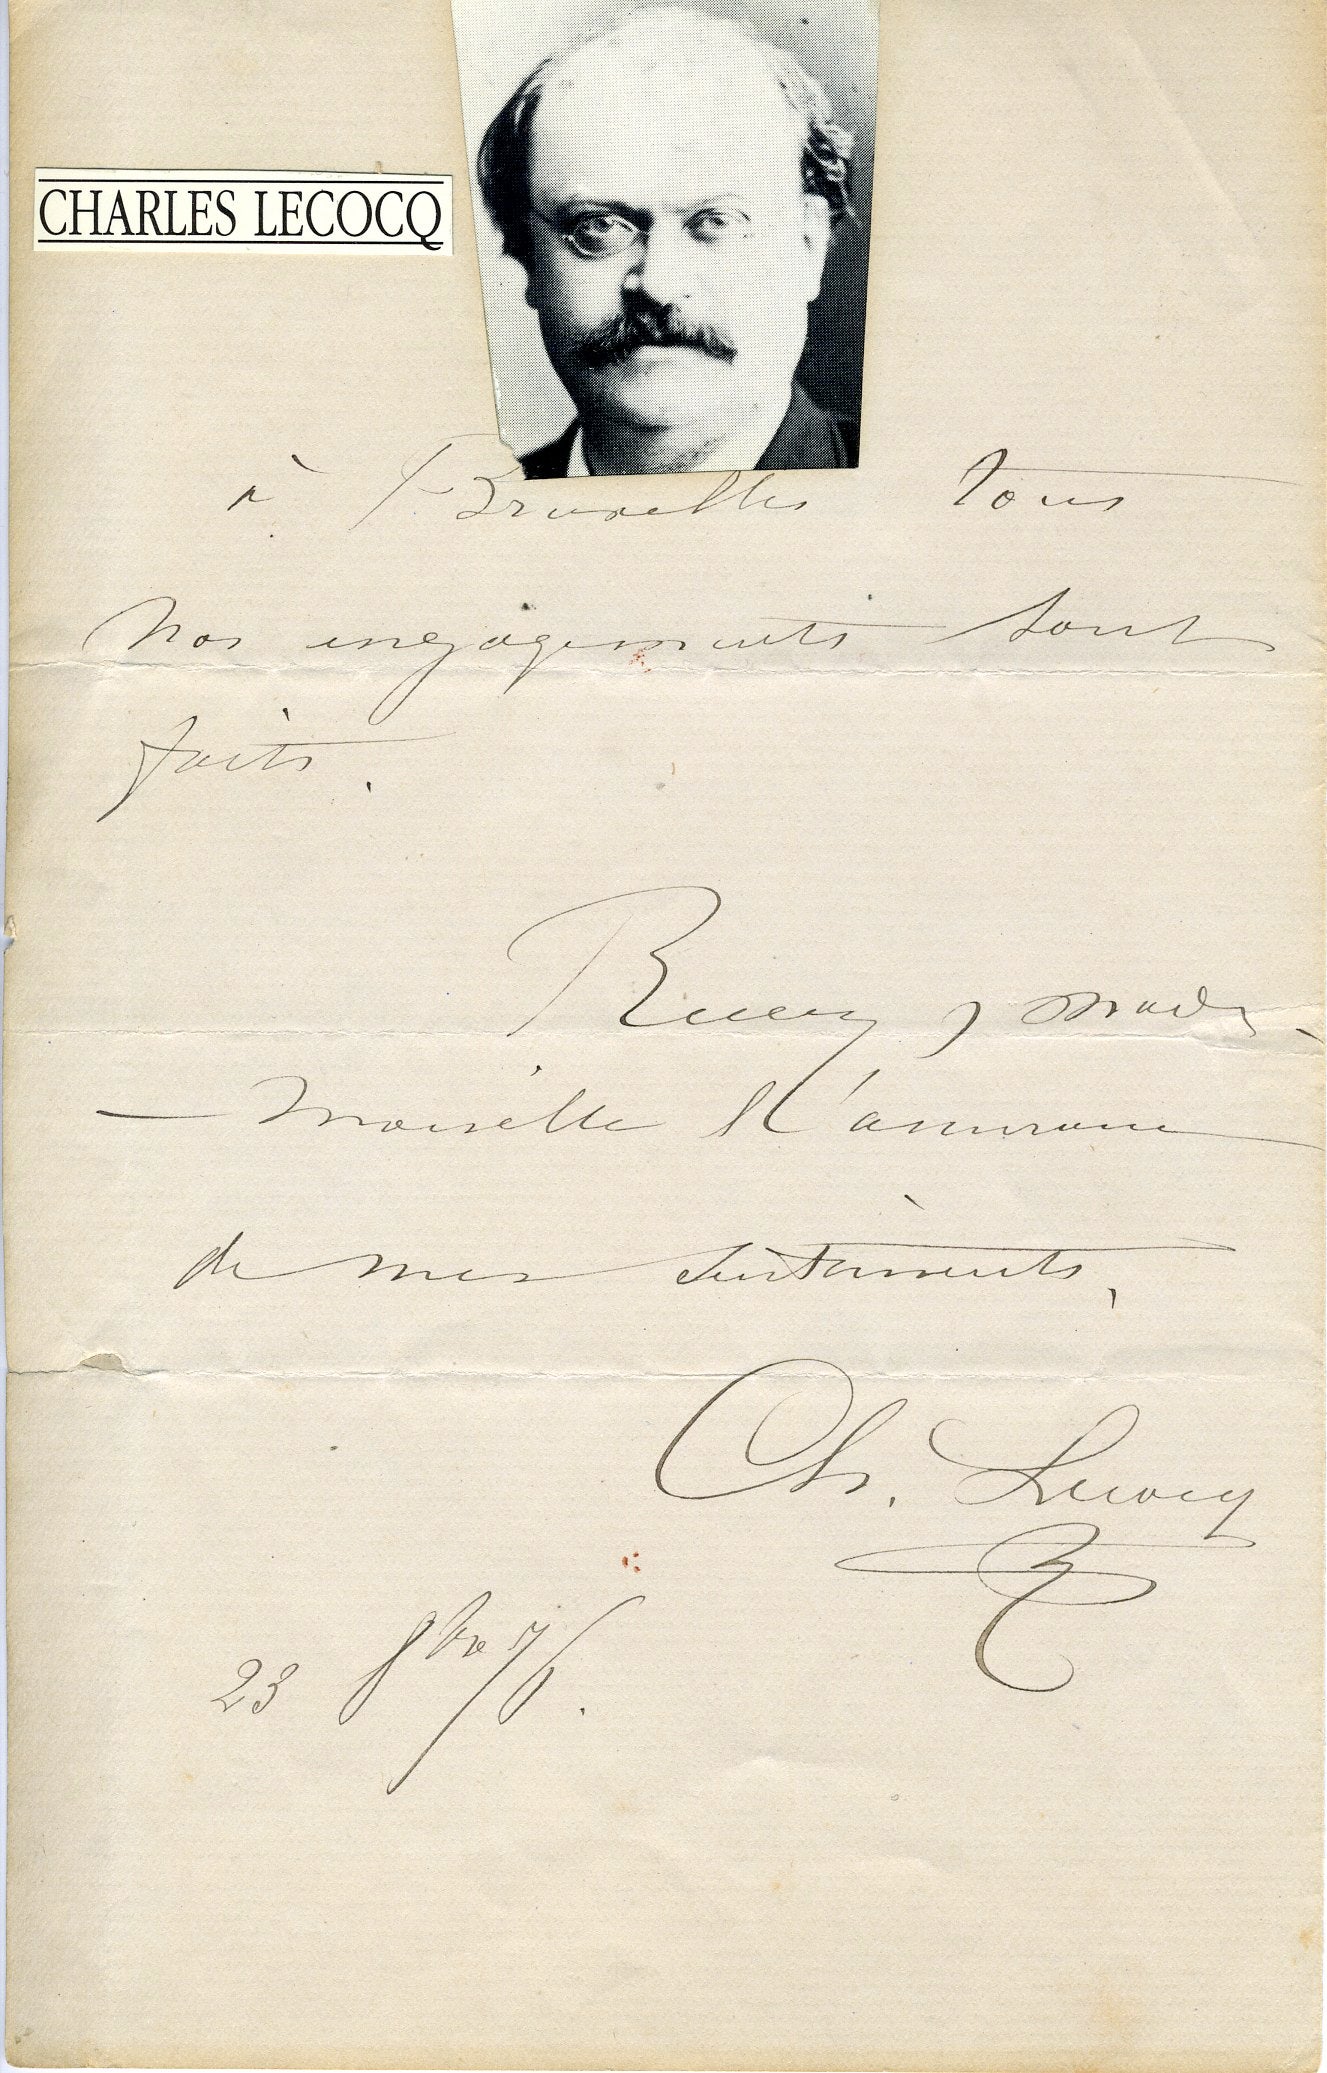 CHARLES LECOCQ
à Bruxelles tous
nos engagements sont
faits.
Recevez, made-
-moiselle l'assurance
de mes sentiments.
Ch. Lecocq
23 8bre 76.